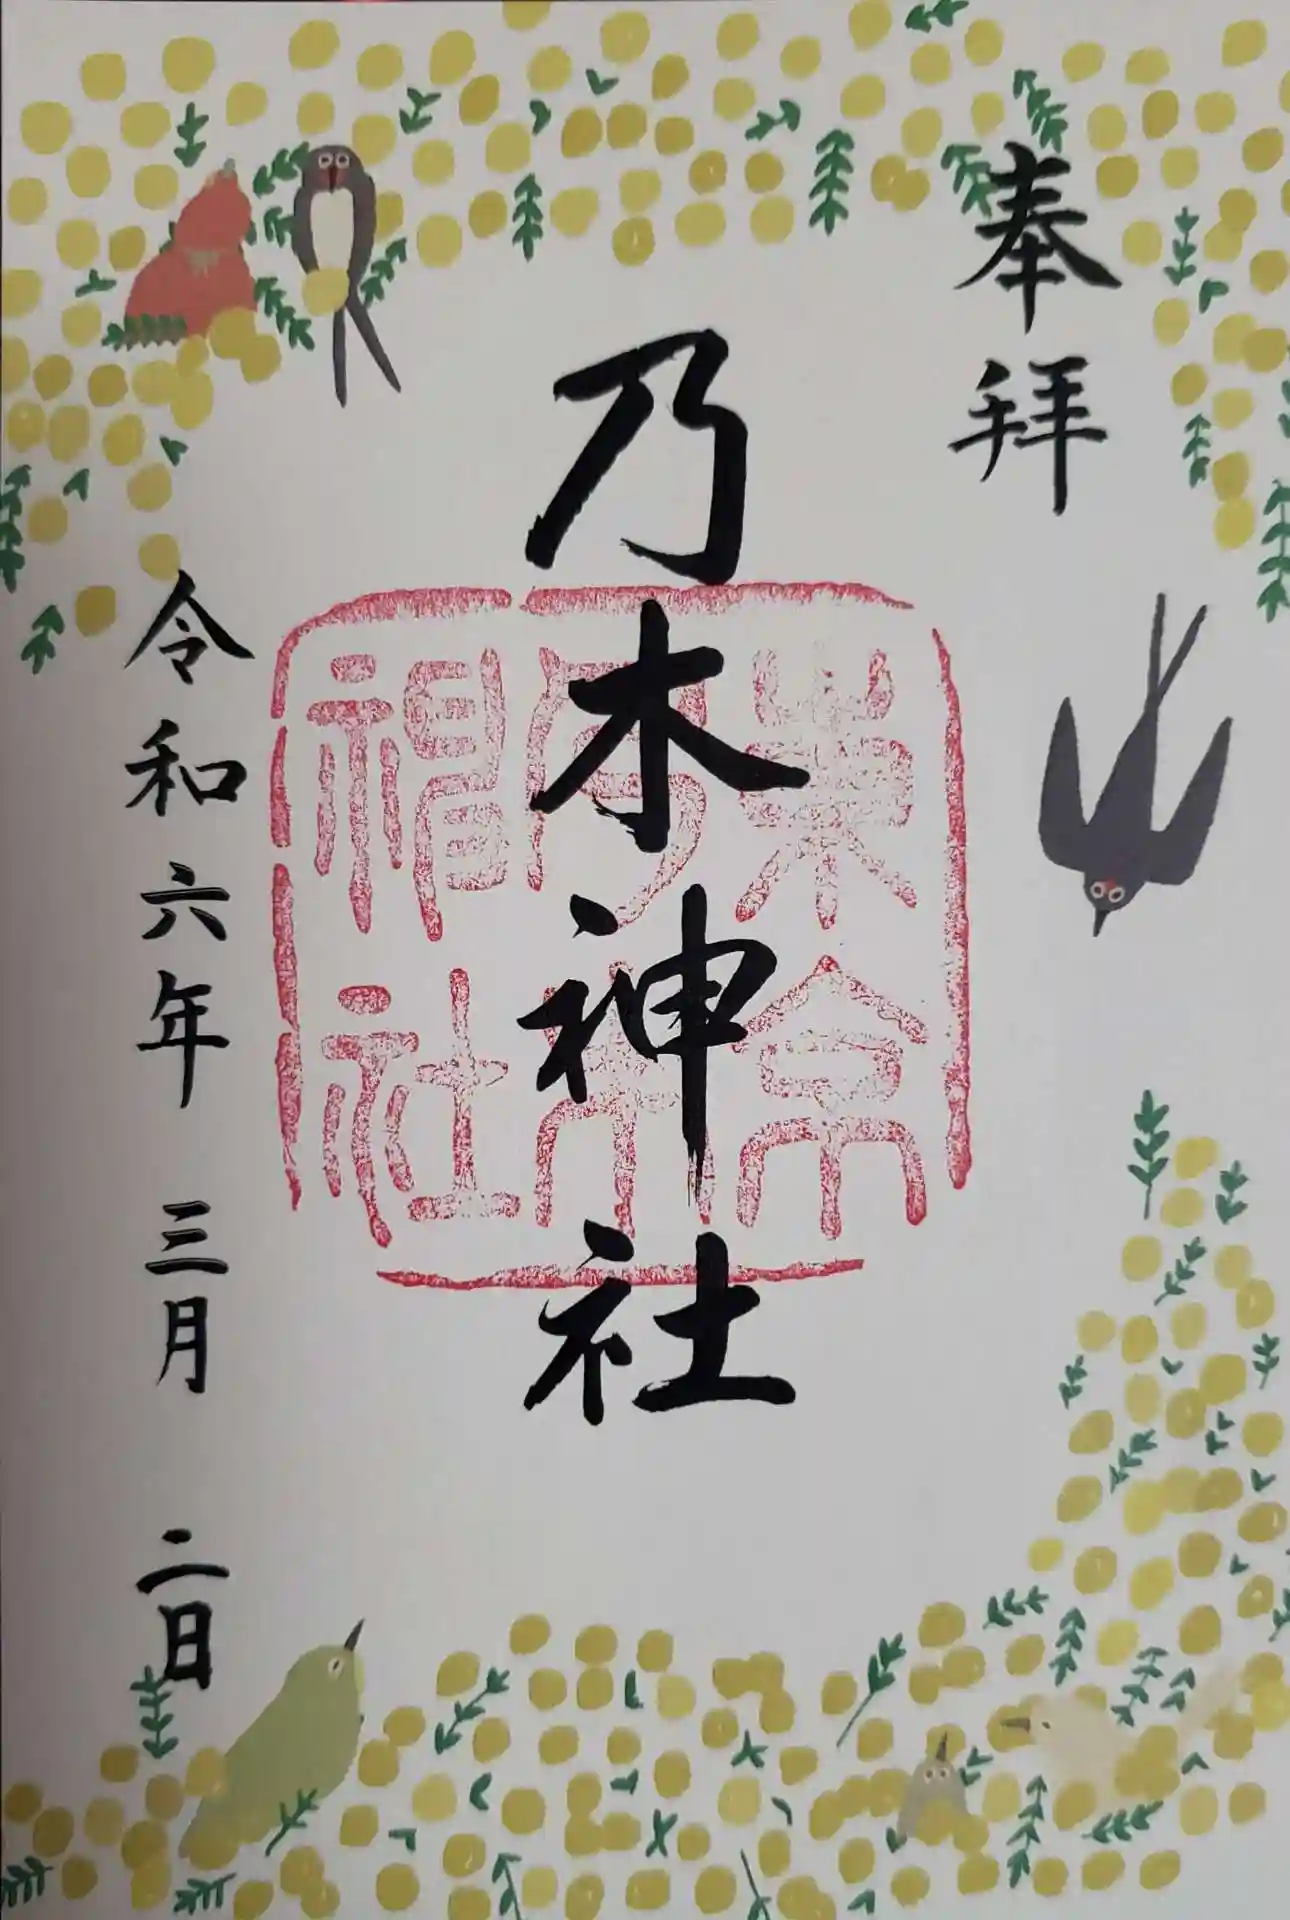 奉拝
乃木神社
東京
乃木
神社
令和六年 三月 二日